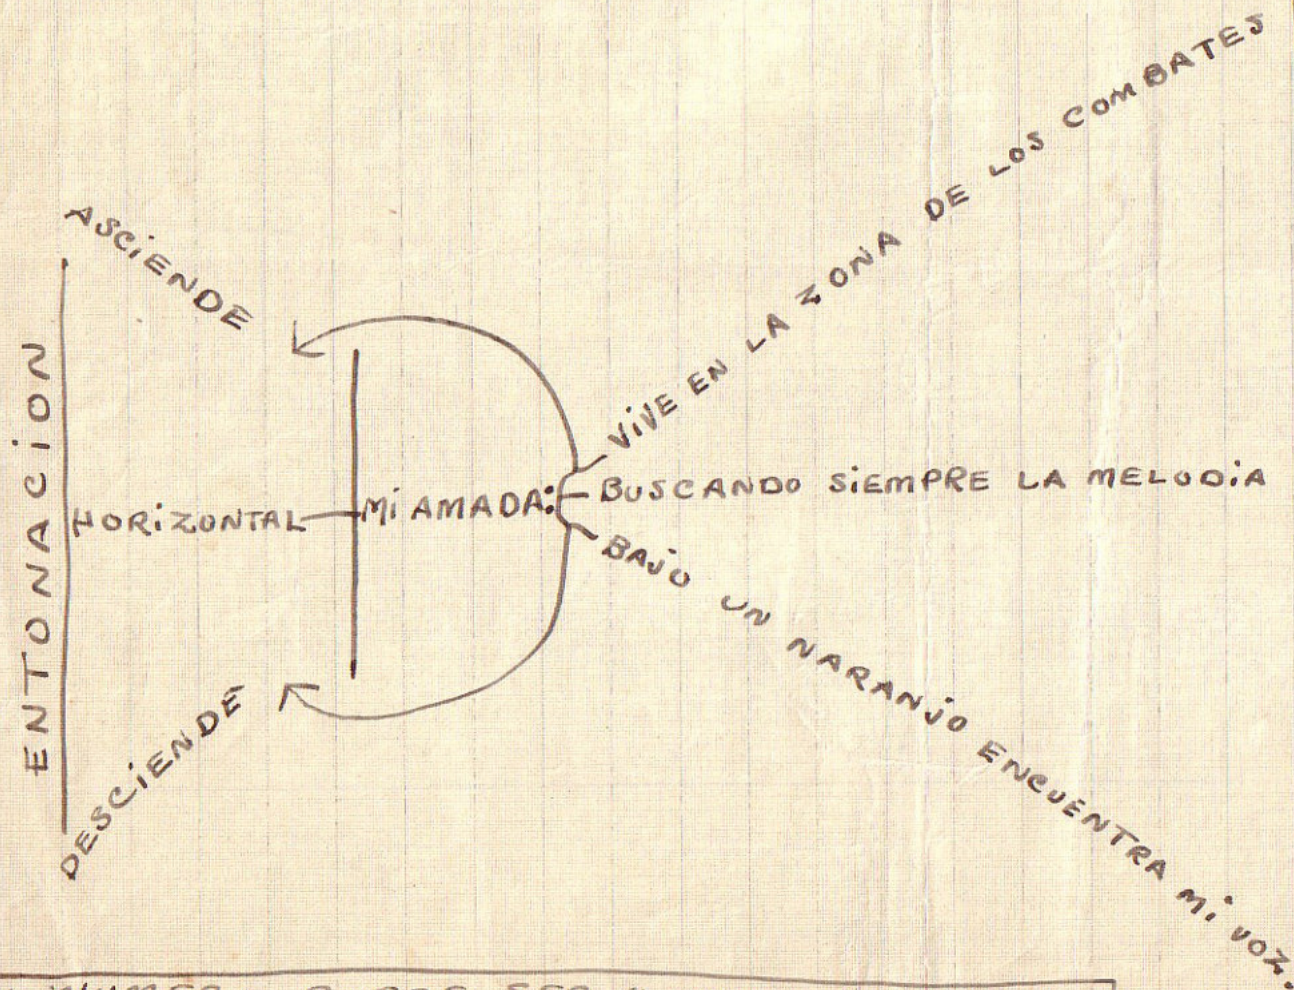 ENTONACION
ASCIENDE
HORIZONTAL
DESCIENDE
MI AMADA:
VIVE EN LA ZONA DE LOS COMBATES
BUSCANDO SIEMPRE LA MELODIA
BAJO UN NARANJO ENCUENTRA MI VOZ.